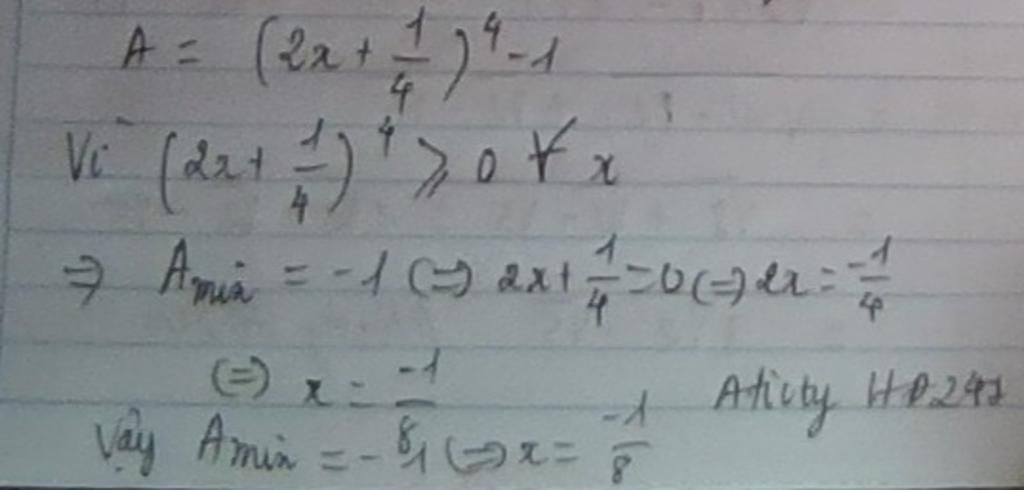 A = (2x + 1/4)^4 - 1
Vì (2x + 1/4)^4 ⩾ 0 ∀ x
=> A min = -1 (=) 2x + 1/4 = 0 (=) 2x = -1/4
(=) x = -1/8
Vậy A min = -1 (=) x = -1/8